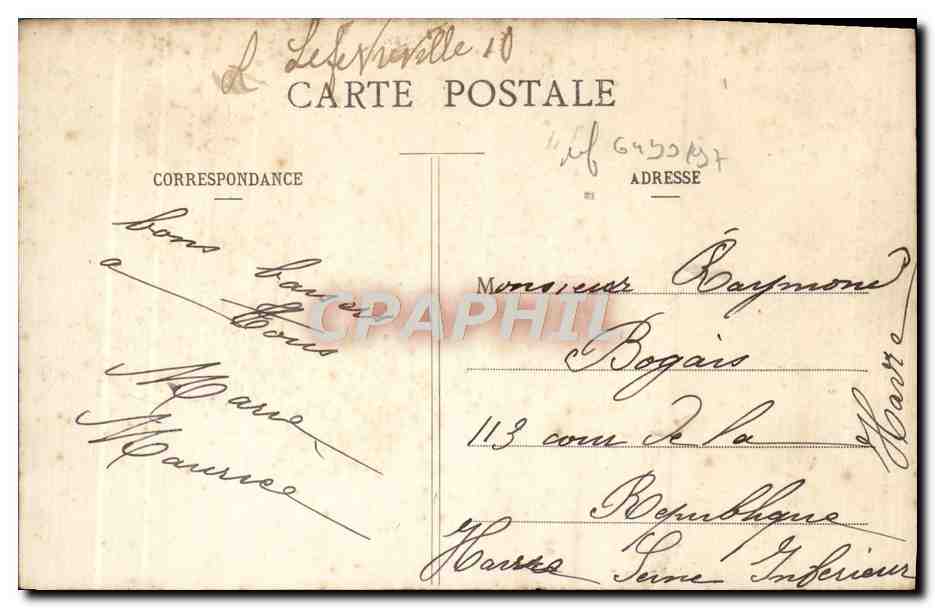 Lefevreville 10
CARTE POSTALE
ref
CORRESPONDANCE
ADRESSE
bons baisers
a Tous
Marie
Maurice
CPAPHIL
Monsieur Raymond
Bogais
113 cour de la
Republique
Havre Seine Inferieur
Havre